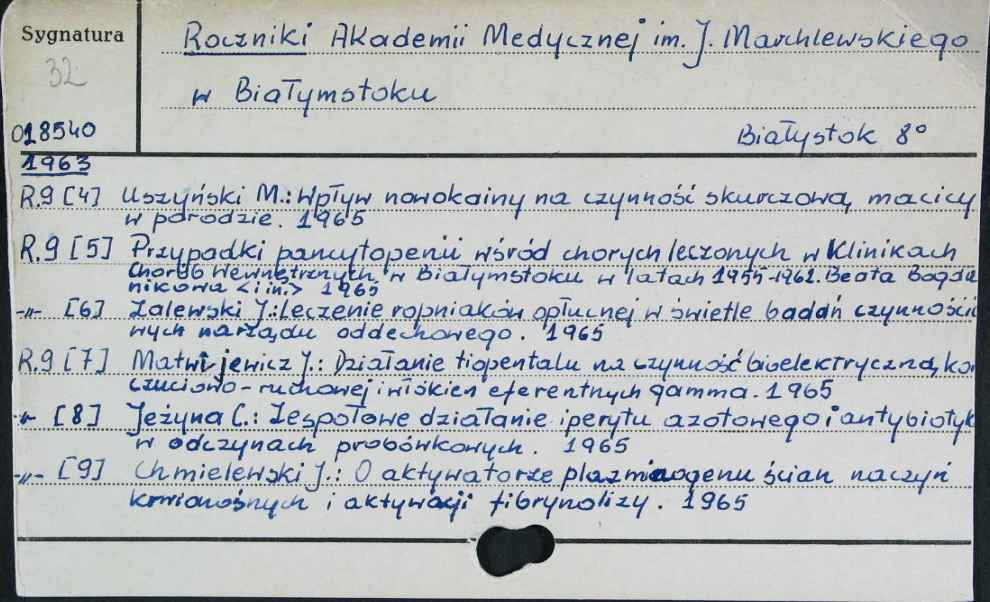 Sygnatura
Roczniki Akademii Medycznej im. J. Marchlewskiego
32
w Białymstoku
018540
Białystok 8°
1963
R.9 [4] Uszyński M.: Wpływ nowokainy na czynność skurczową macicy
w porodzie. 1965
R.9 [5] Przypadki pancytopenii wśród chorych leczonych w Klinikach
Chorób Wewnętrznych w Białymstoku w latach 1955-1961. Beata Bogda
nikowa <i in.> 1965
-"- [6] Zalewski J.: Leczenie ropniaków opłucnej w świetle badań czynności
wych narządu oddechowego. 1965
R.9 [7] Matwijewicz J.: Działanie tiopentalu na czynność bioelektryczną ko
czuciowo-ruchowej i włókien eferentnych gamma. 1965
-"- [8] Jeżyna C.: Zespołowe działanie iperytu azotowego i antybiotyk
w odczynach probówkowych. 1965
-"- [9] Chmielewski J.: O aktywatorze plazminogenu ścian naczyń
krwionośnych i aktywacji fibrynolizy. 1965